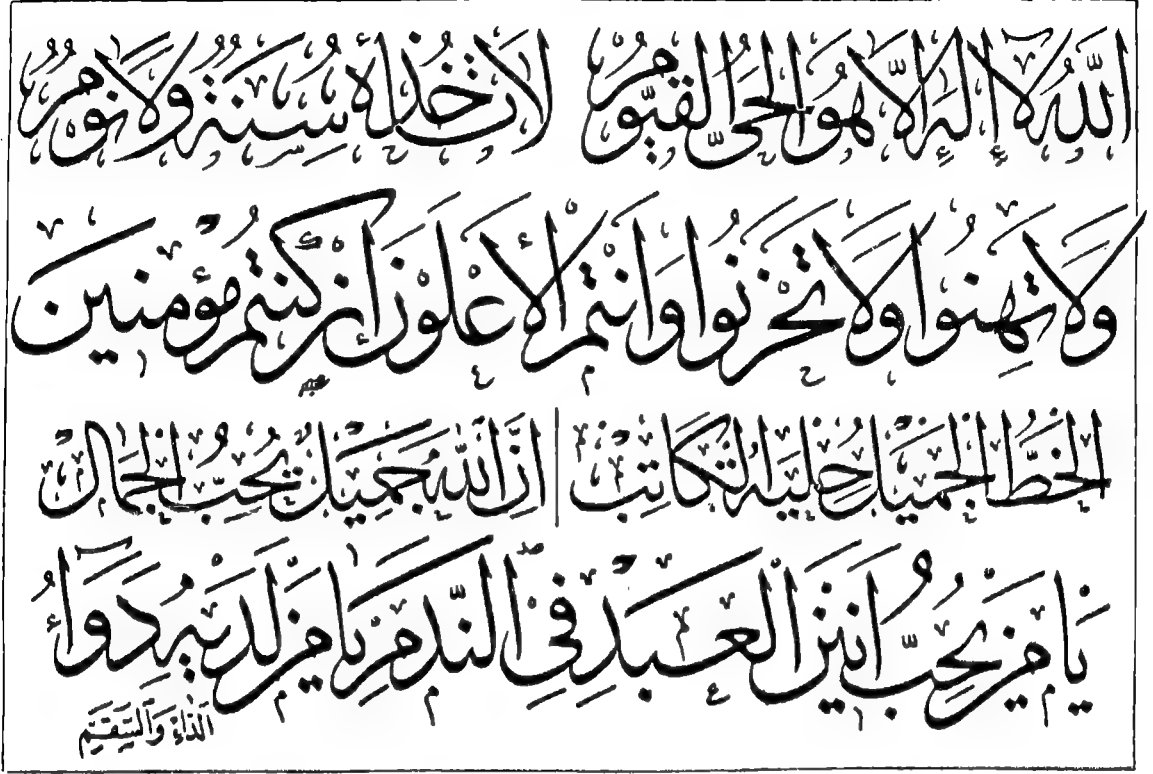 اللَّهُ لَا إِلَهَ إِلَّا هُوَ الْحَيُّ الْقَيُّومُ لَا تَأْخُذُهُ سِنَةٌ وَلَا نَوْمٌ
وَلَا تَهِنُوا وَلَا تَحْزَنُوا وَأَنْتُمُ الْأَعْلَوْنَ إِنْ كُنْتُمْ مُؤْمِنِينَ
الخَطُّ الجَمِيلُ حِلْيَةُ الكَاتِبِ إِنَّ اللَّهَ جَمِيلٌ يُحِبُّ الجَمَالَ
يَا مَنْ يُحِبُّ أَنِينَ الْعَبْدِ فِي النَّدَمِ يَا مَنْ لَدَيْهِ دَوَاءُ
الدَّاءِ وَالسَّقَمِ